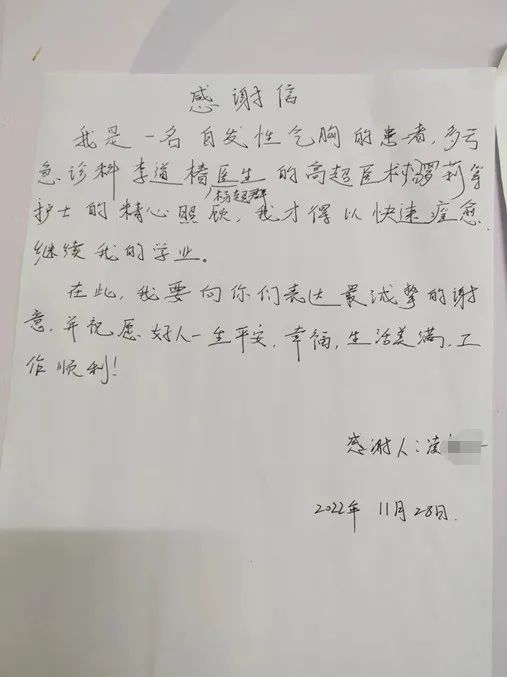 感谢信
我是一名自发性气胸的患者,多亏
急诊科李道椿医生的高超医术,莉等
杨超群
护士的精心照顾,我才得以快速痊愈
继续我的学业。
在此,我要向你们表达最诚挚的谢
意,并祝愿好人一生平安,幸福,生活美满,工
作顺利!
感谢人:凌
2022年 11月28日.